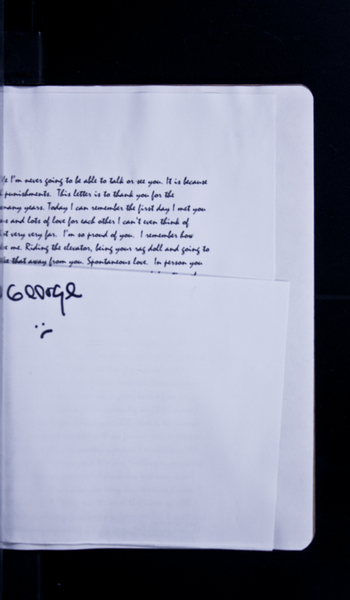 I'm never going to be able to talk or see you. It is because
punishments. This letter is to thank you for the
many years. Today I can remember the first day I met you
and lots of love for each other I can't even think of
very very far. I'm so proud of you. I remember how
me. Riding the elevator, being your rag doll and going to
that away from you. Spontaneous love. In person you
George
:(